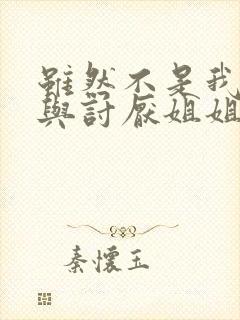 雖然不是我
與討厭姐姐
秦懷玉